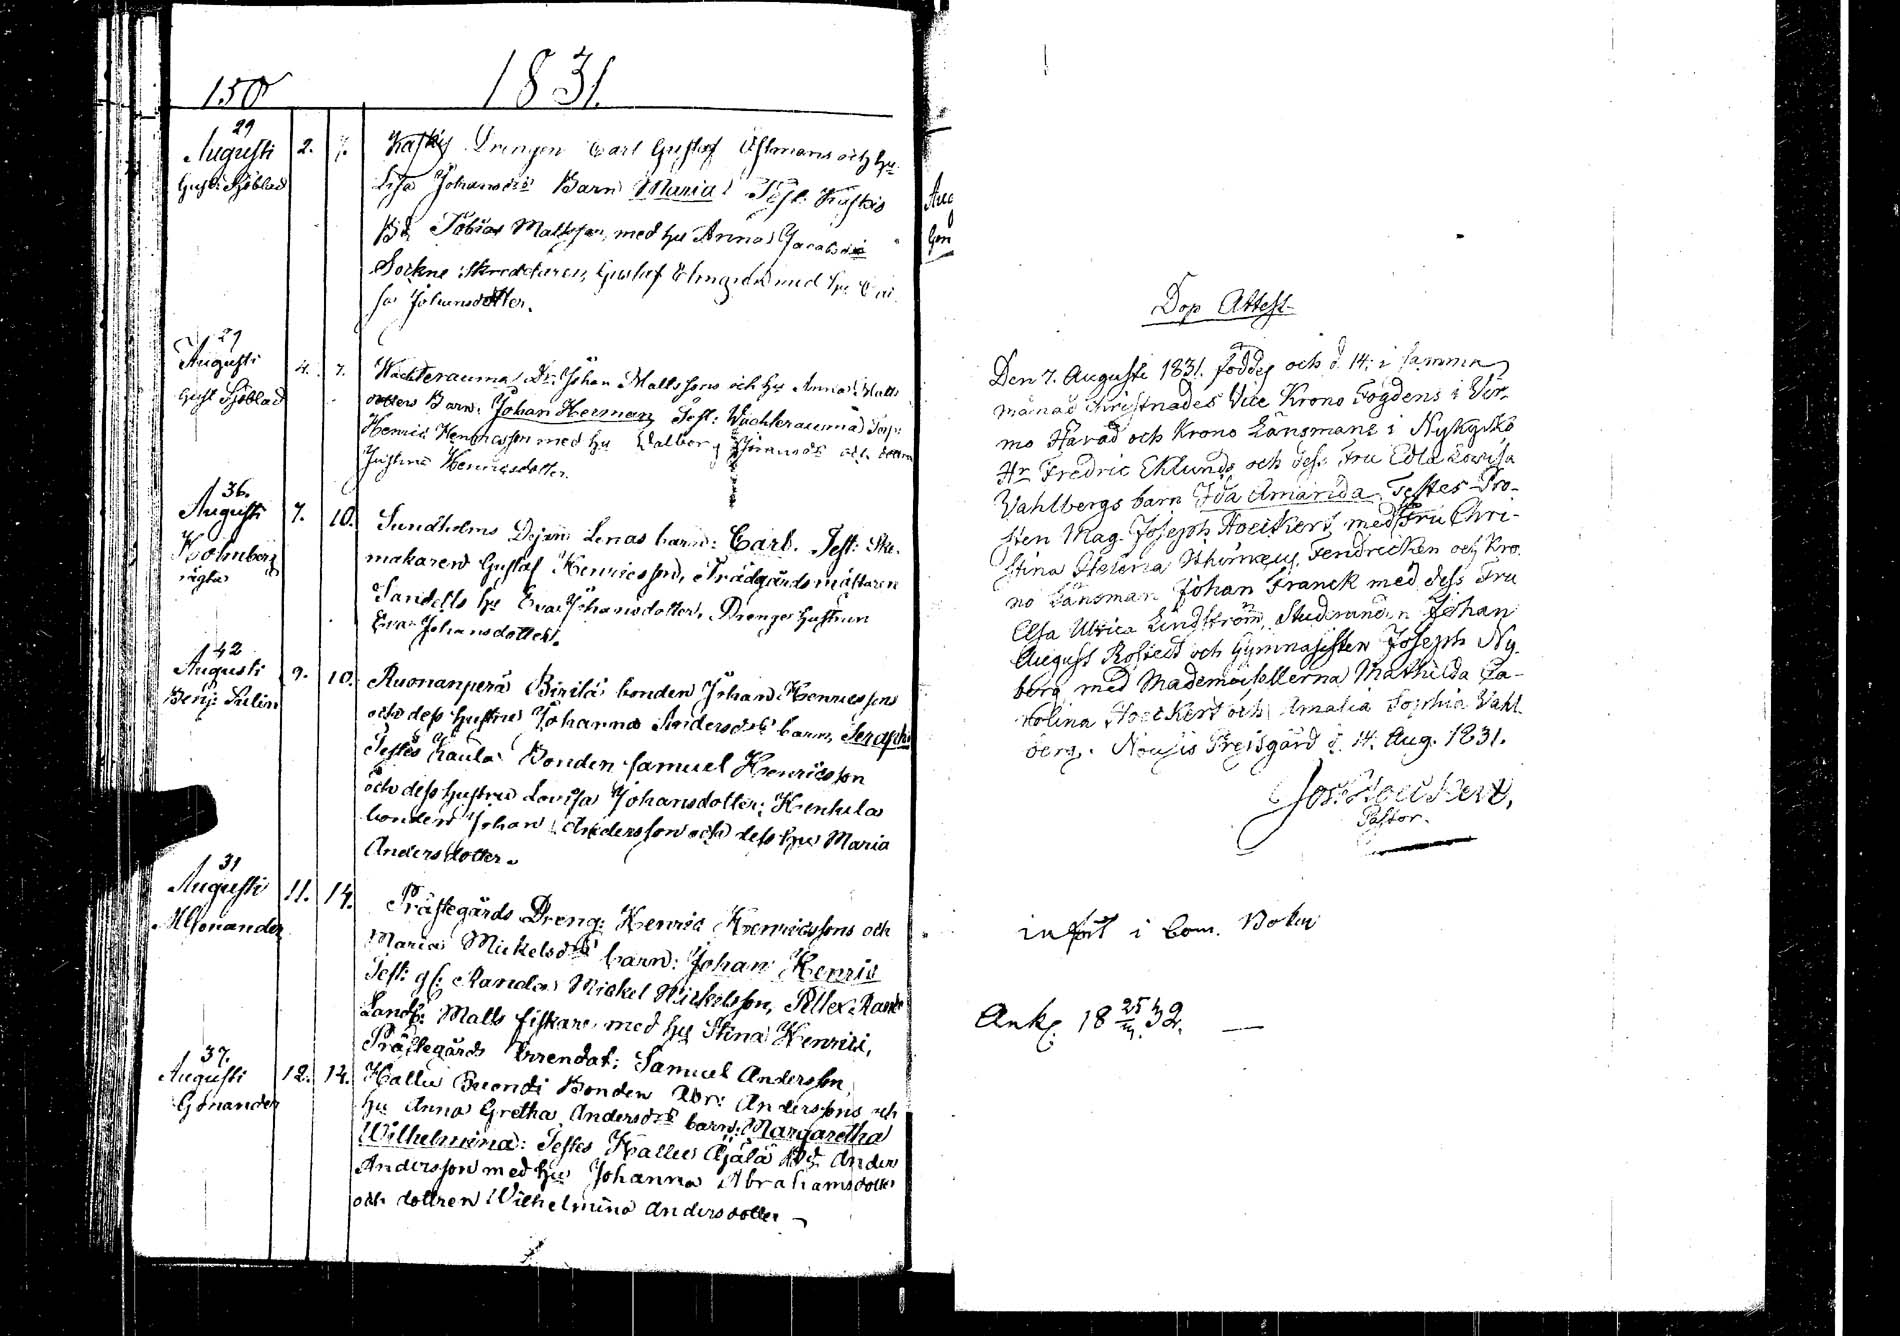 150 1831.
29
Augusti 2. 7. Kaskis Drengen Carl Gustaf Östmans och hu
Gust: Sjöblad Lisa Johansdrs Barn Maria! Test: Kuskis
Bd Tobias Mattsson, med hu Anna Jacobsd
Sockne Skreddaren, Gustaf Elmgren med hu Cai
sa Johansdotter.
29
Augusti 4. 7. Wachterauma Dr: Johan Mattssons och hu Anna Matts
Gust Sjöblad dotters Barn: Johan Herman Test: Wachterauma Torp:
Henric Henricsson med hu Walborg och
Justina Henricsdotter.
36.
Augusti 7. 10. Sundholms Dejan Lenas barn: Carl. Test: Sko-
Holmberg makaren Gustaf Henricsson, Trädgårdsmästaren
Sandells hu Eva Johansdotter, Drenge hustrun
Eva Johansdotter.
42
Augusti 9. 10. Ruonanperä Birilä bonden Johan Henricssons
Benj: Lilius och dess hustru Johanna Andersdrs barn, Seraphi
Testes Caula Bonden Samuel Henricsson
och dess hustru Lovisa Johansdotter: Henkula
bonden Johan Andersson och dess hu Maria
Andersdotter.
31
Augusti 11. 14. Prästegårds Dreng: Henric Henricssons och
M Gonander Maria Mickelsdrs barn: Johan Henric
Test: gl: Randa Mickel Mickelsson,
Matts fiskare med hu Stina Henrici,
Prästegårds Arrendat: Samuel Andersson
37.
Augusti 12. 14. Kallu Buendi Bonden Abr: Anderssons och
Gonander hu Anna Gretha Andersdrs barn: Margaretha
Wilhelmina: Testes Kallu Äjälä Bd Anders
Andersson med hu Johanna Abrahamsdotter
och dottren Wilhelmina Andersdotter
Dop Attest
Den 7. Augusti 1831. föddes och d 14: i samma
månad Christnades Vice Krono Fogdens i Vir-
mo Härad och Krono Länsmans i Nykyrko
Hr Fredric Eklunds och dess Fru Edla Lovisa
Vahlbergs barn Ida Amanda. Testes Pro-
sten Mag. Joseph Hoeckert med Fru Chri-
stina Helena Fendricken och Kro
no Länsman Johan Franck med dess Fru
Elsa Ulrica Lindström, Studeranden Johan
August Rostedt och Gymnasisten Joseph Ny-
berg med Mademoisellerna Mathilda Ca-
rolina Hoeckert och Amalia Sophia Vahl
berg. Nousis Prestgård d. 14. Aug. 1831.
Jos: Hoeckert,
Pastor.
infört i Com. Boken
Ank: 18 25/3 32.